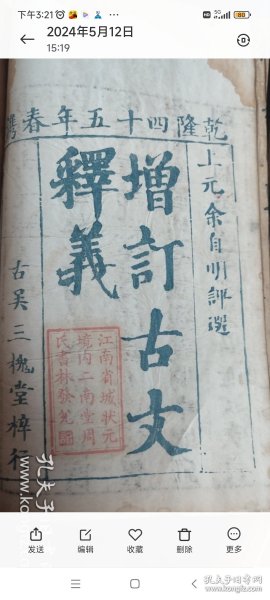 下午3:21
5G
80
2024年5月12日
15:19
乾隆四十五年春鐫
上元余自明評選
增訂古文
釋義
古吴三槐堂梓行
江南省城狀元
境內二南堂周
氏書林發兌
孔夫子
发送
编辑
收藏
删除
更多
孔夫子旧书网
www.kongfz.com